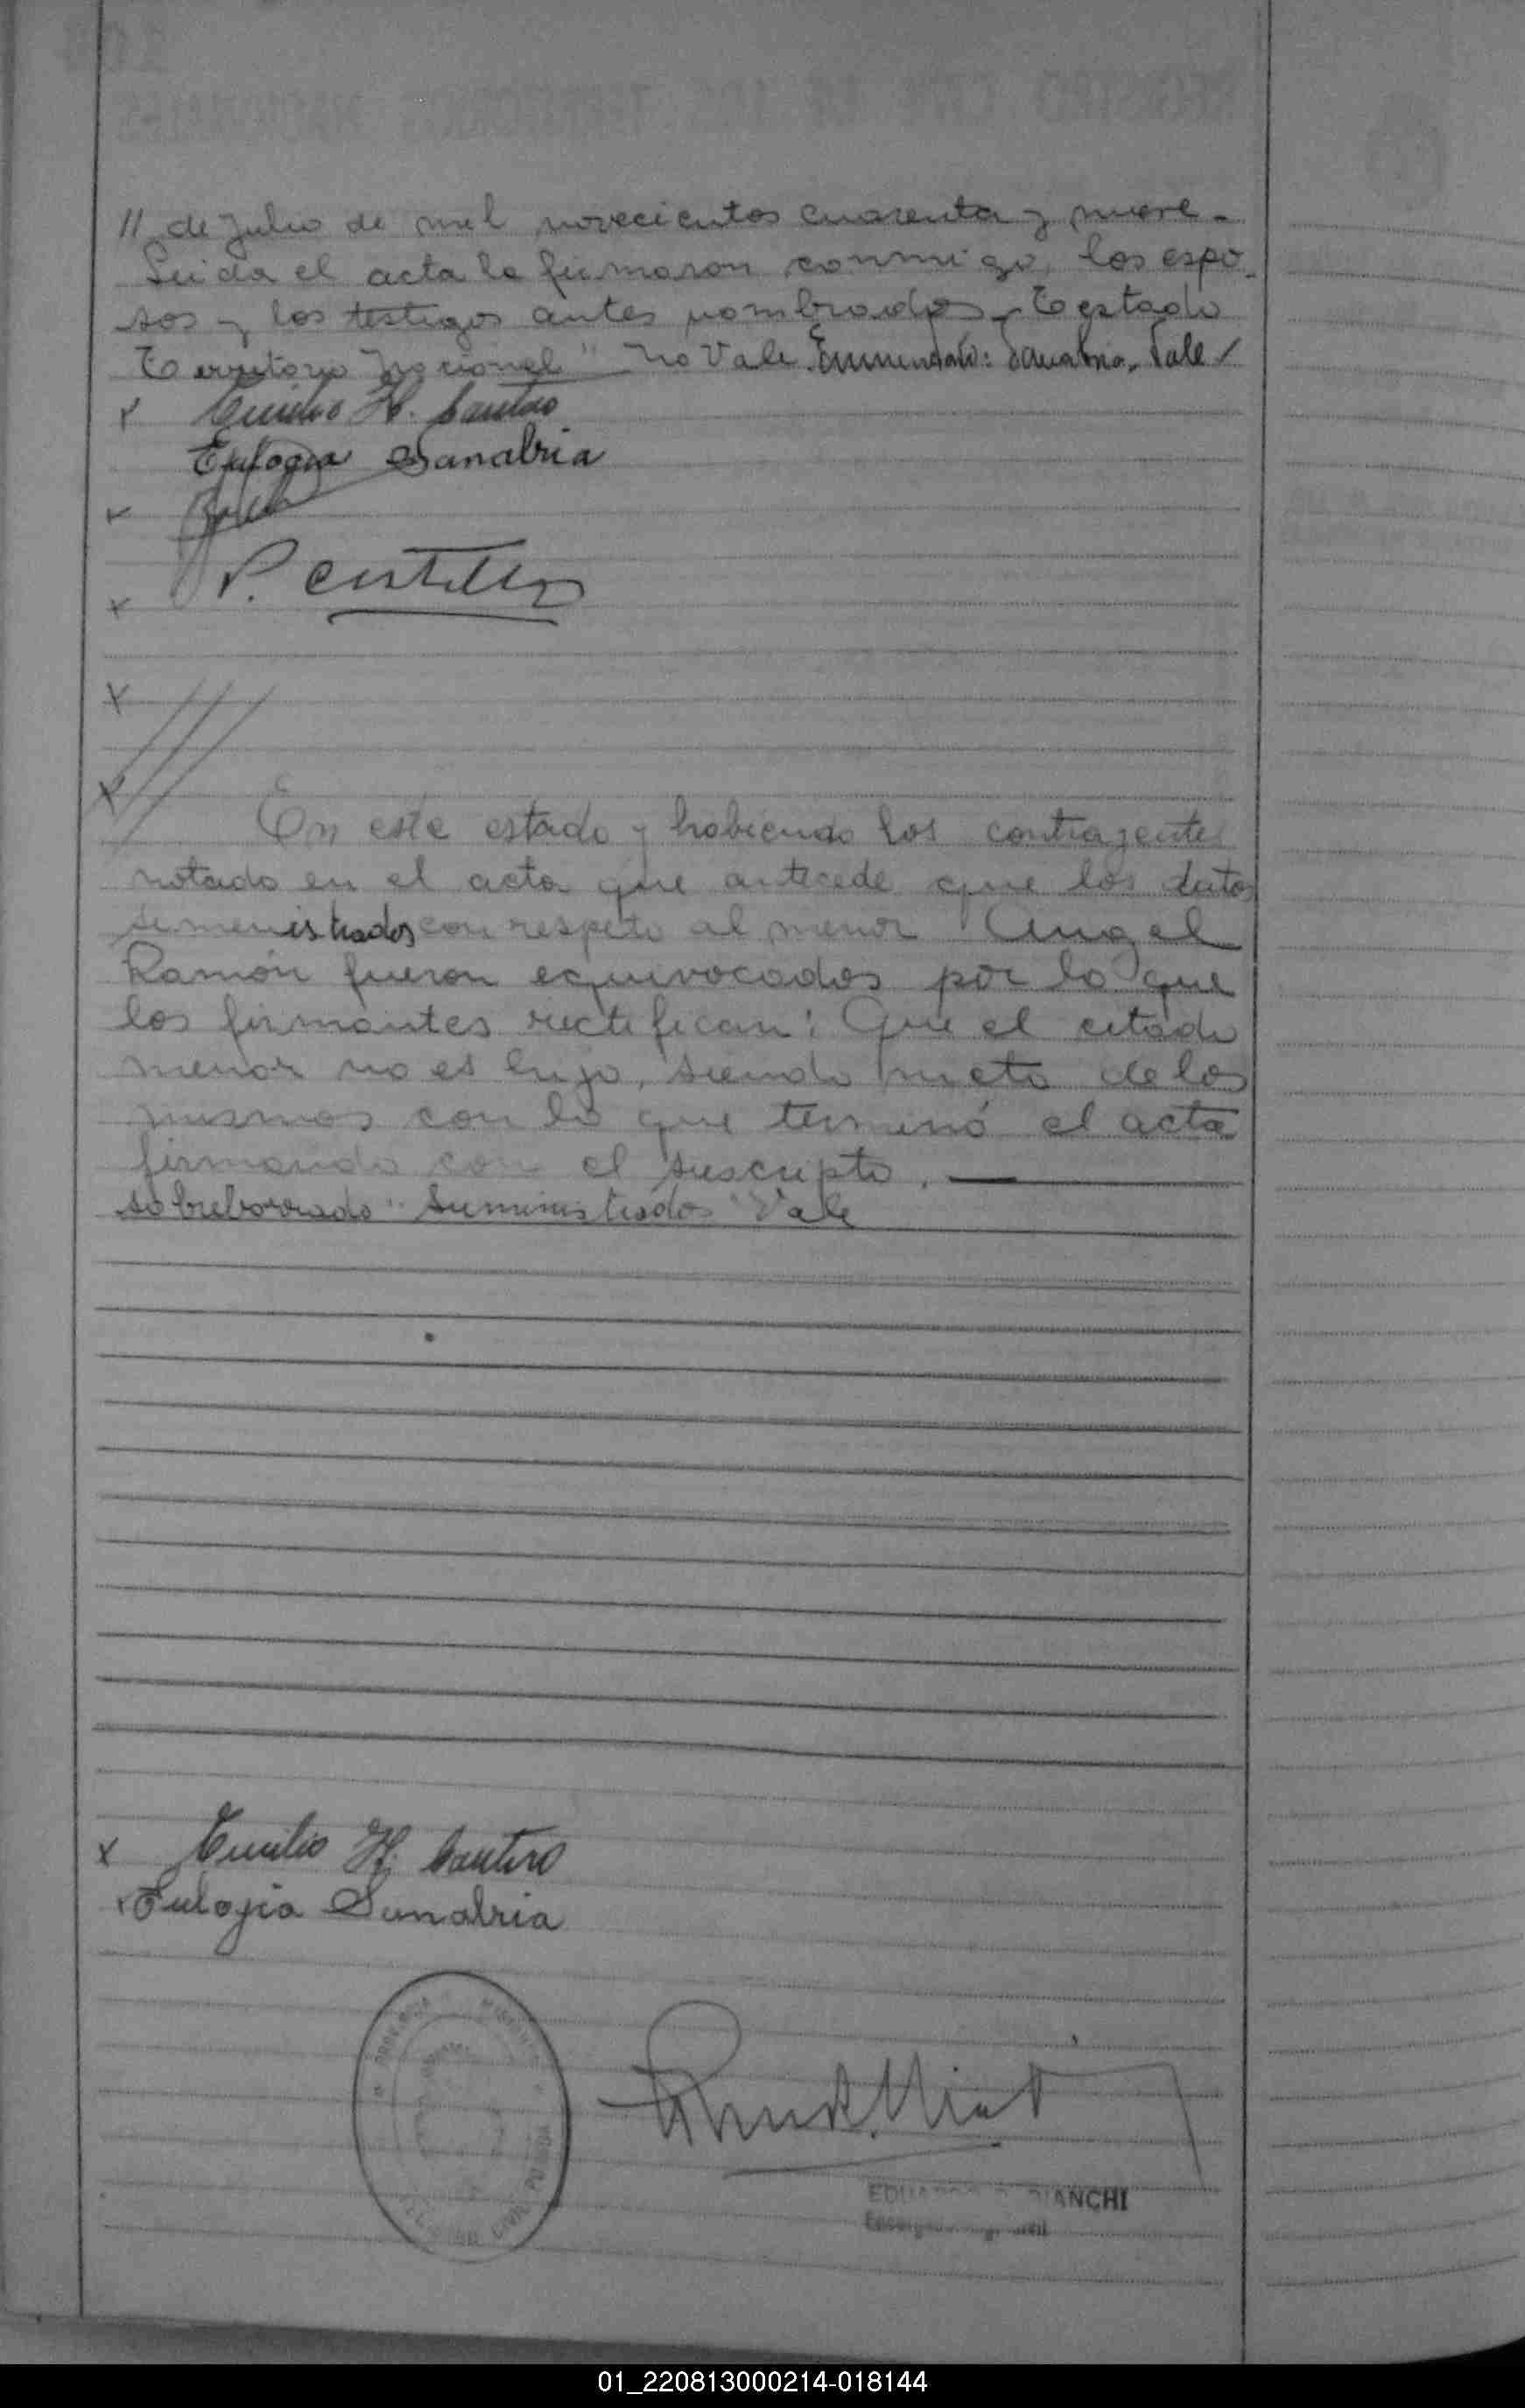 // de Julio de mil novecientos cuarenta y nueve.-
Leida el acta la firmaron conmigo, los espo-
sos y los testigos antes nombrados - Testado
Territorio Nacional" No Vale. Enmendado: Sanabria. Vale /
x Emilio H. Cantero
Eulogia Sanabria
x
x P. Castillo
x
x
En este estado y habiendo los contrayentes
notado en el acta que antecede que los datos
suministrados con respeto al menor Angel
Ramón fueron equivocados por lo que
los firmantes rectifican: Que el citado
menor no es hijo, siendo nieto de los
mismos con lo que terminó el acta
firmando con el suscripto. —
sobreborrado "suministrados" Vale
x Emilio H. Cantero
x Eulogia Sanabria
PROVINCIA MISIONES
REGISTRO CIVIL POSADAS
EDUARDO BIANCHI
01_220813000214-018144